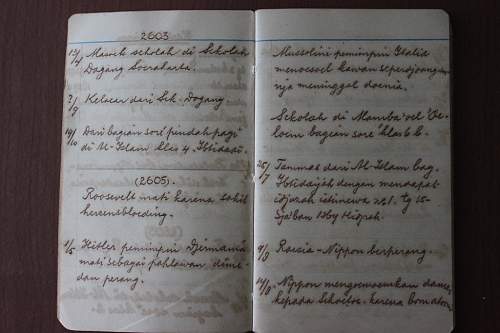 2603
12/4 Masoek sekolah di Sekolah
Dagang Soerakarta.
2/9 Keloear dari Sek. Dagang
19/10 Dari bagian soré pindah pagi
di Al-Islam klas 4. Ibtidaii.
(2605).
Roosevelt mati karena sakit
hersensbloeding.
1/5 Hitler pemimpin Djermania
mati sebagai pahlawan dime-
dan perang.
Mussolini pemimpin Italia
menoesoel kawan seperdjoeangan
nja meninggal doenia.
Sekolah di Mamba'oel 'Oe-
loem bagian soré klas 6 b.
25/7 Tammat dari Al-Islam bag.
Ibtidaijah dengan mendapat
idjazah istimewa n.l. tg 15-
Sja'ban 1364 Hidjrah.
9/8 Roesia-Nippon berperang.
14/8 Nippon mengoemoemkan damai
kepada Sekoetoe. karena bom atoom.